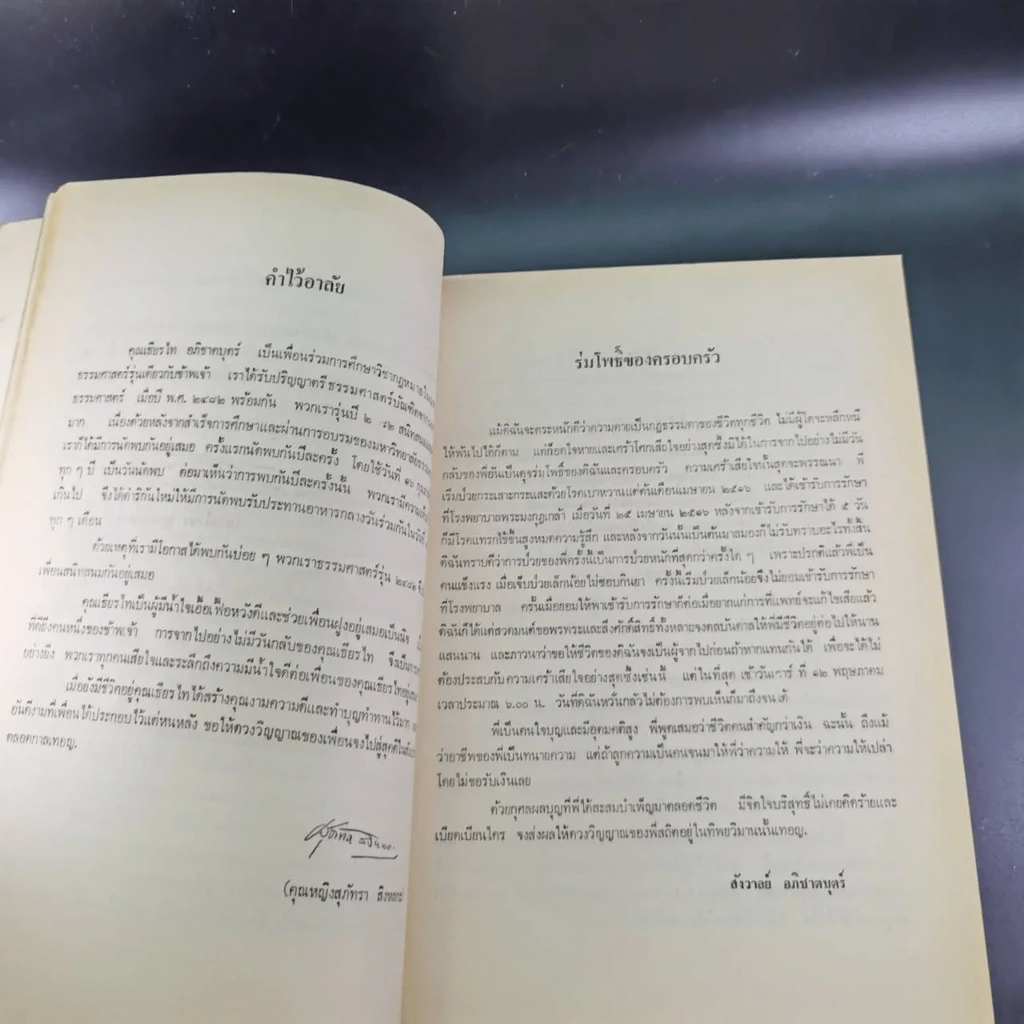 คำไว้อาลัย
คุณเธียรไท อภิชาตบุตร์ เป็นเพื่อนร่วมการศึกษาวิชากฎหมายใน
ธรรมศาสตร์รุ่นเดียวกับข้าพเจ้า เราได้รับปริญญาตรีธรรมศาสตร์บัณฑิตจาก
ธรรมศาสตร์ เมื่อปี พ.ศ. ๒๔๘๒ พร้อมกัน พวกเรารุ่นปี ๒๔๘๒ สนิทสนม
มาก เนื่องด้วยหลังจากสำเร็จการศึกษาและผ่านการอบรมของมหาวิทยาลัย
เราก็ได้มีการนัดพบกันอยู่เสมอ ครั้งแรกนัดพบกันปีละครั้ง โดยใช้วันที่ ๑๖
ทุก ๆ ปี เป็นวันนัดพบ ต่อมาเห็นว่าการพบกันปีละครั้งนั้น พวกเรามีความ
เกินไป จึงได้ดำริกันใหม่ให้มีการนัดพบรับประทานอาหารกลางวันร่วมกันใน
ทุก ๆ เดือน
ด้วยเหตุที่เรามีโอกาสได้พบกันบ่อย ๆ พวกเราธรรมศาสตร์รุ่น ๒๔๘๒
เพื่อนสนิทสนมกันอยู่เสมอ
คุณเธียรไทเป็นผู้มีน้ำใจเอื้อเฟื้อหวังดีและช่วยเพื่อนฝูงอยู่เสมอเป็นนิจ
ที่ดียิ่งคนหนึ่งของข้าพเจ้า การจากไปอย่างไม่มีวันกลับของคุณเธียรไท จึงเป็น
อย่างยิ่ง พวกเราทุกคนเสียใจและระลึกถึงความมีน้ำใจดีต่อเพื่อนของคุณเธียรไท
เมื่อยังมีชีวิตอยู่คุณเธียรไทได้สร้างคุณงามความดีและทำบุญทำทานไว้มาก
อันดีงามที่เพื่อนได้ประกอบไว้แต่หนหลัง ขอให้ดวงวิญญาณของเพื่อนจงไปสู่สุคติ
ตลอดกาลเทอญ.
(คุณหญิงสุภัทรา สิงหลกะ
ร่มโพธิ์ของครอบครัว
แม้ดิฉันจะตระหนักดีว่าความตายเป็นกฎธรรมดาของชีวิตทุกชีวิต ไม่มีผู้ใดจะหลีกหนี
ให้พ้นไปได้ก็ตาม แต่ก็อดใจหายและเศร้าโศกเสียใจอย่างสุดซึ้งมิได้ในการจากไปอย่างไม่มีวัน
กลับของพี่อันเป็นดุจร่มโพธิ์ของดิฉันและครอบครัว ความเศร้าเสียใจนั้นสุดจะพรรณนา พี่
เริ่มป่วยกระเสาะกระแสะด้วยโรคเบาหวานแต่ต้นเดือนเมษายน ๒๕๑๖ และได้เข้ารับการรักษา
ที่โรงพยาบาลพระมงกุฎเกล้า เมื่อวันที่ ๒๕ เมษายน ๒๕๑๖ หลังจากเข้ารับการรักษาได้ ๕ วัน
ก็มีโรคแทรกไข้ขึ้นสูงหมดความรู้สึก และหลังจากวันนั้นเป็นต้นมาสมองก็ไม่รับทราบอะไรทั้งสิ้น
ดิฉันทราบดีว่าการป่วยของพี่ครั้งนี้เป็นการป่วยหนักที่สุดกว่าครั้งใด ๆ เพราะปรกติแล้วพี่เป็น
คนแข็งแรง เมื่อเจ็บป่วยเล็กน้อยไม่ชอบกินยา ครั้งนี้เริ่มป่วยเล็กน้อยจึงไม่ยอมเข้ารับการรักษา
ที่โรงพยาบาล ครั้นเมื่อยอมให้พาเข้ารับการรักษาก็ต่อเมื่อยากแก่การที่แพทย์จะแก้ไขเสียแล้ว
ดิฉันก็ได้แต่สวดมนต์ขอพรพระและสิ่งศักดิ์สิทธิ์ทั้งหลายจงดลบันดาลให้พี่มีชีวิตอยู่ต่อไปให้นาน
แสนนาน และภาวนาว่าขอให้ชีวิตของดิฉันจงเป็นผู้จากไปก่อนถ้าหากแทนกันได้ เพื่อจะได้ไม่
ต้องประสบกับความเศร้าเสียใจอย่างสุดซึ้งเช่นนี้ แต่ในที่สุด เช้าวันเสาร์ ที่ ๑๒ พฤษภาคม
เวลาประมาณ ๖.๐๐ น. วันที่ดิฉันหวั่นกลัวไม่ต้องการพบเห็นก็มาถึงจนได้
พี่เป็นคนใจบุญและมีอุดมคติสูง พี่พูดเสมอว่าชีวิตคนสำคัญกว่าเงิน ฉะนั้น ถึงแม้
ว่าอาชีพของพี่เป็นทนายความ แต่ถ้าลูกความเป็นคนจนมาให้พี่ว่าความให้ พี่จะว่าความให้เปล่า
โดยไม่ขอรับเงินเลย
ด้วยกุศลผลบุญที่พี่ได้สะสมบำเพ็ญมาตลอดชีวิต มีจิตใจบริสุทธิ์ไม่เคยคิดร้ายและ
เบียดเบียนใคร จงส่งผลให้ดวงวิญญาณของพี่สถิตอยู่ในทิพยวิมานนั้นเทอญ.
สังวาลย์ อภิชาตบุตร์